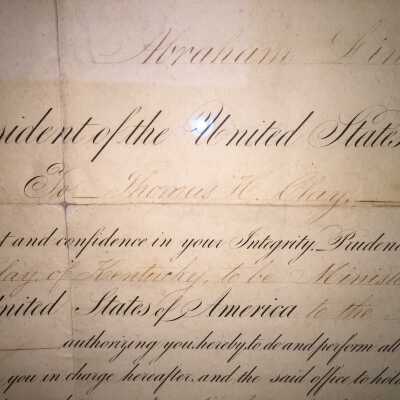 Abraham Lin
sident of the United States
To Thomas H. Clay
t and confidence in your Integrity, Pruden
lay, of Kentucky, to be Ministe
nited States of America to the
authorizing you, hereby, to do and perform all
you in charge hereafter, and the said office to hold